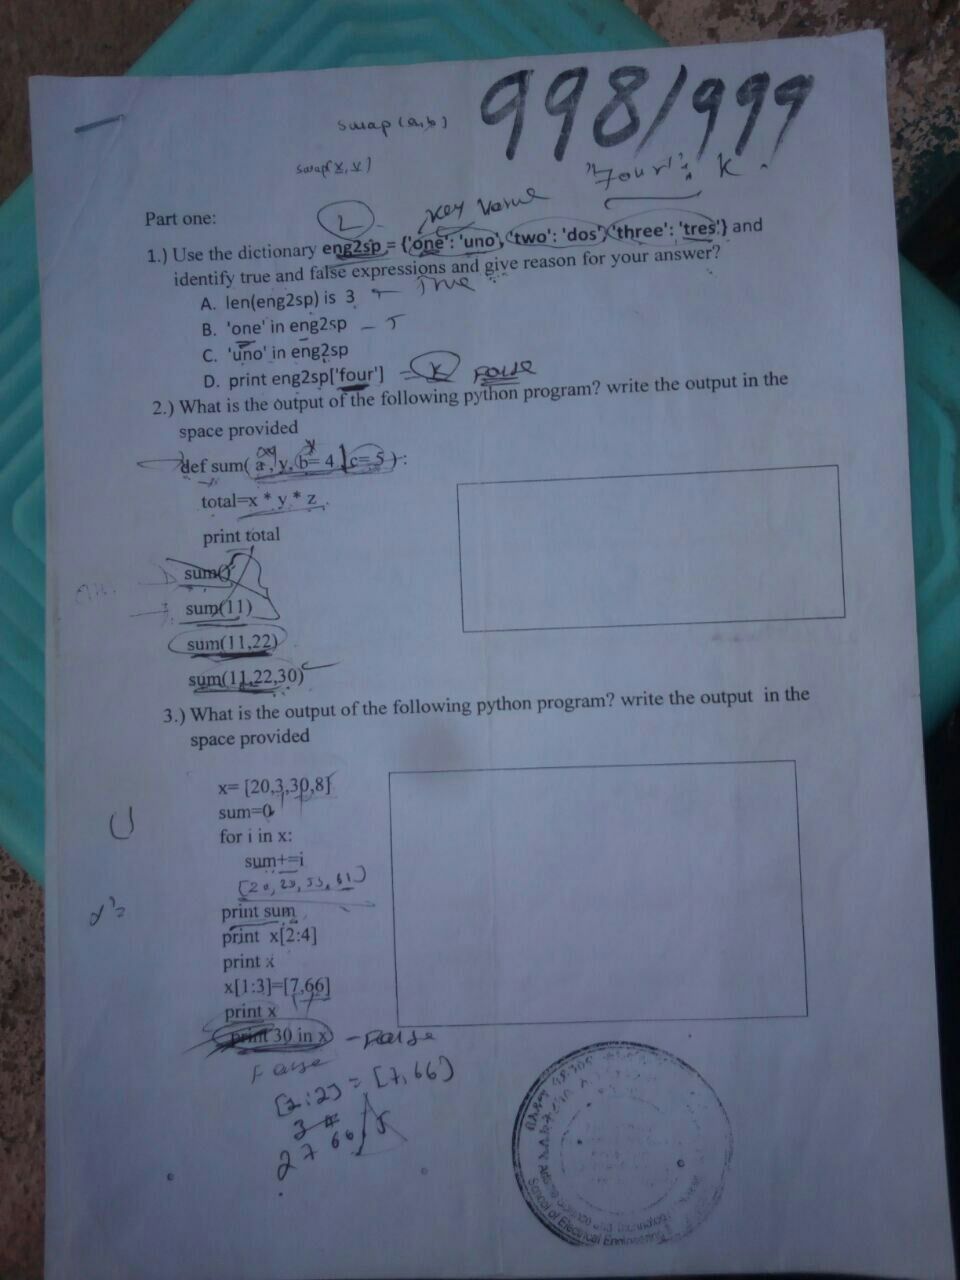 998/999
swap(a,b)
swap(x,y)
"Four": K.
Key Value
Part one:
L
1.) Use the dictionary eng2sp = {'one': 'uno', 'two': 'dos', 'three': 'tres'} and
identify true and false expressions and give reason for your answer?
A. len(eng2sp) is 3 True
B. 'one' in eng2sp - T
C. 'uno' in eng2sp
D. print eng2sp['four'] K False
2.) What is the output of the following python program? write the output in the
space provided
def sum( a, y, b= 4, c= 5 ):
total=x * y * z
print total
sum()
sum(11)
sum(11,22)
sum(11,22,30)
3.) What is the output of the following python program? write the output in the
space provided
x= [20,3,30,8]
sum=0
for i in x:
sum+=i
[20, 23, 53, 61]
print sum
print x[2:4]
print x
x[1:3]=[7,66]
print x
print 30 in x - False
False
[2:2] = [7,66]
2 7 66
School of Electrical Engineering